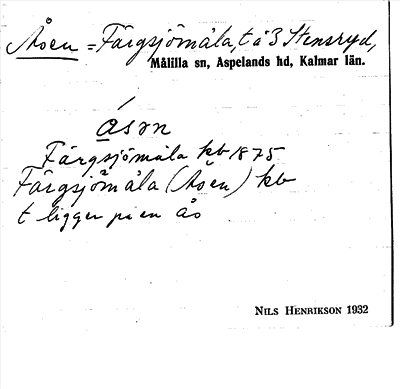 Åsen = Färgsjömåla, t å 3 Stensryd,
Målilla sn, Aspelands hd, Kalmar län.
åsən
Färgsjömåla kb 1875
Färgsjömåla (Åsen) kb
t ligger på en ås
NILS HENRIKSON 1932